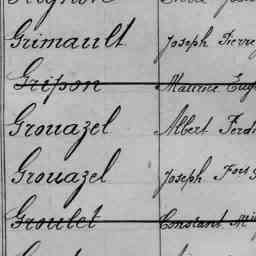 Grimault Joseph Pierre
Gripon Maurice Eug
Grouazel Albert Ferdi
Grouazel Joseph
Groulet Constant